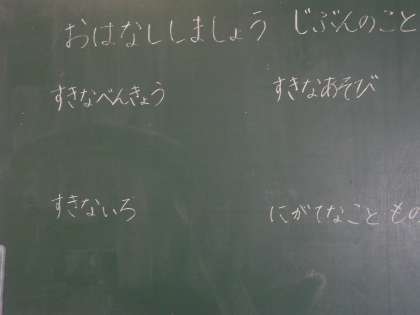 おはなししましょう じぶんのこと
すきなべんきょう すきなあそび
すきないろ にがてなこと もの